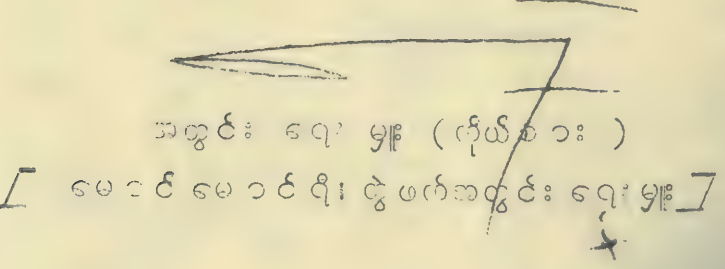 အတွင်းရေးမှူး (ကိုယ်စား)
[ မောင်မောင်ရီ၊ တွဲဖက်အတွင်းရေးမှူး ]